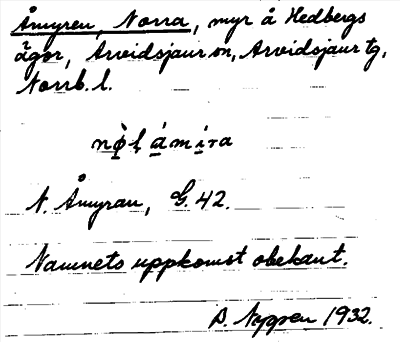 Åmyren, Norra, myr å Hedbergs
ägor, Arvidsjaur sn, Arvidsjaur tg,
Norrb. l.
N. Åmyran, G. 42.
Namnets uppkomst obekant.
D. 1932.